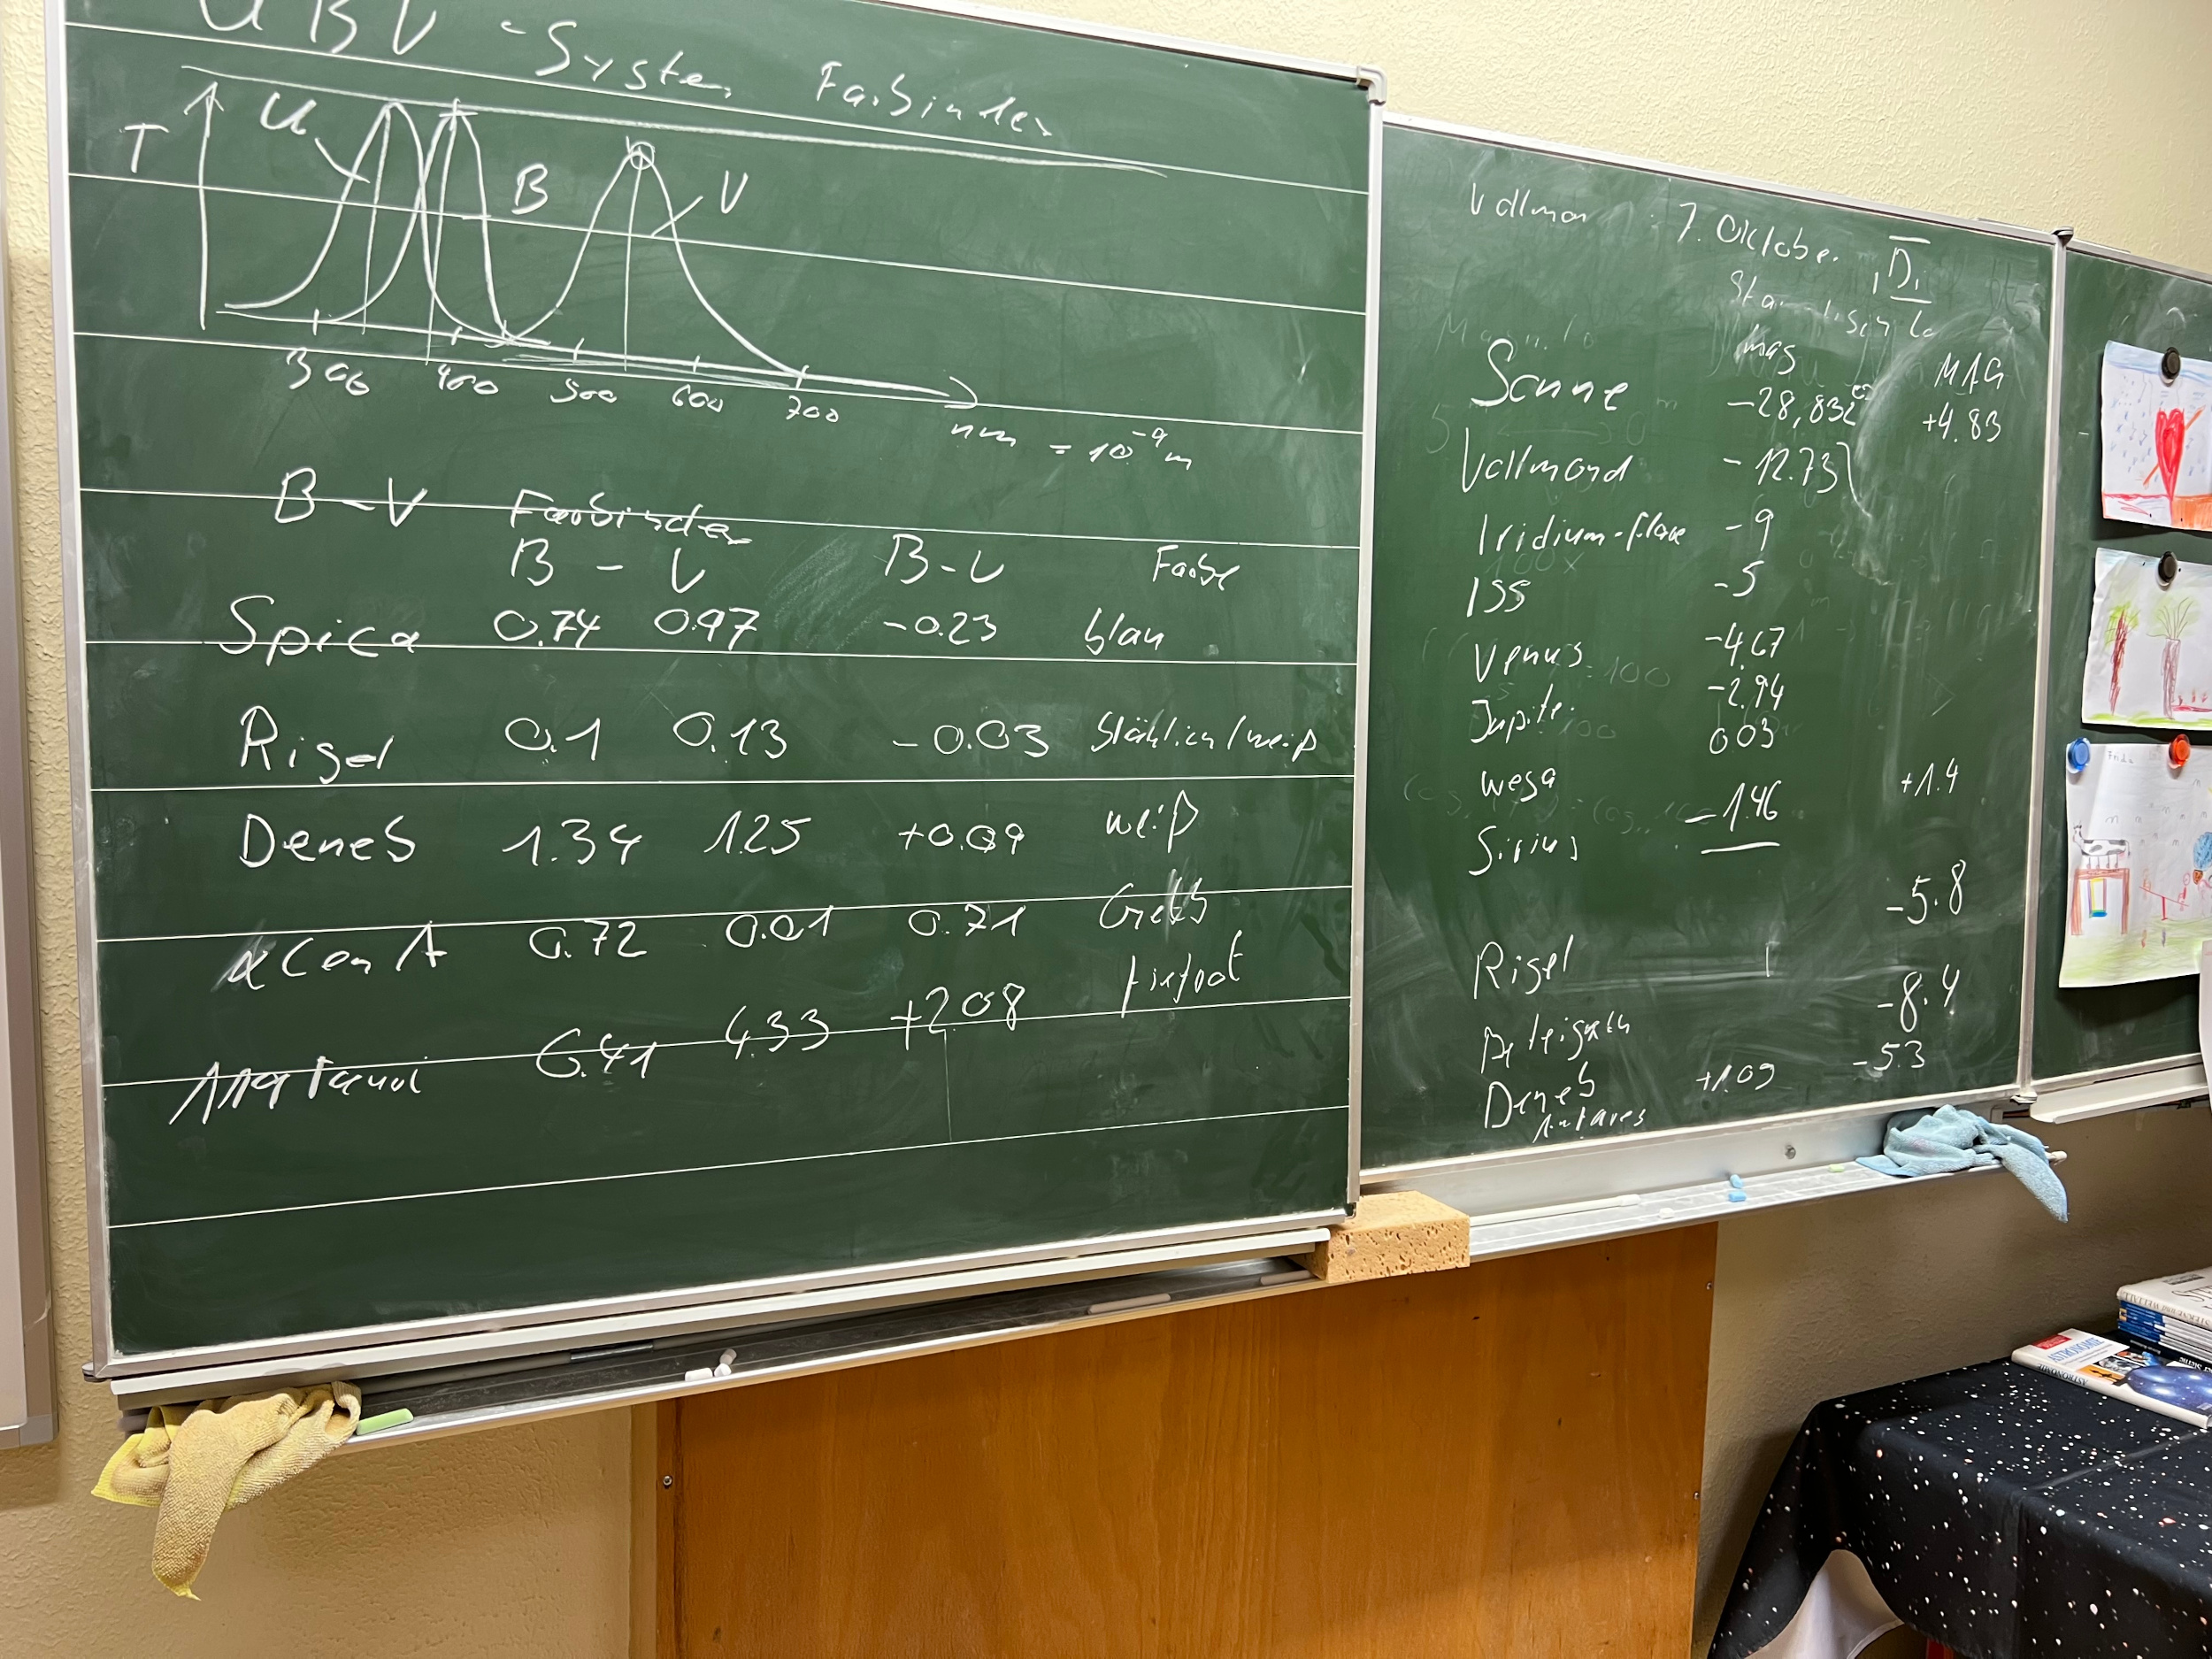 UBV-System Farbindex
T
U
B
V
300 400 500 600 700
nm = 10⁻⁹ m
B-V Farbindex
B - V B-V Farbe
Spica 0.74 0.97 -0.23 blau
Rigel 0.1 0.13 -0.03 bläulich/weiß
Deneb 1.34 1.25 +0.09 weiß
αCen A 0.72 0.01 0.71 Gelb
119 Tauri 6.41 4.33 +2.08 tiefrot
Vollmon : 7. Oktober, Di
mag MAG
Sonne -28,832 +4.83
Vollmond -12.73
Iridium-flare -9
ISS -5
Venus -4.67
Jupiter -2.94
Wega 0.03
Sirius -1.46 +1.4
Rigel -5.8
Deneb +1.09 -8.4
Antares -5.3
ASTRONOMIE